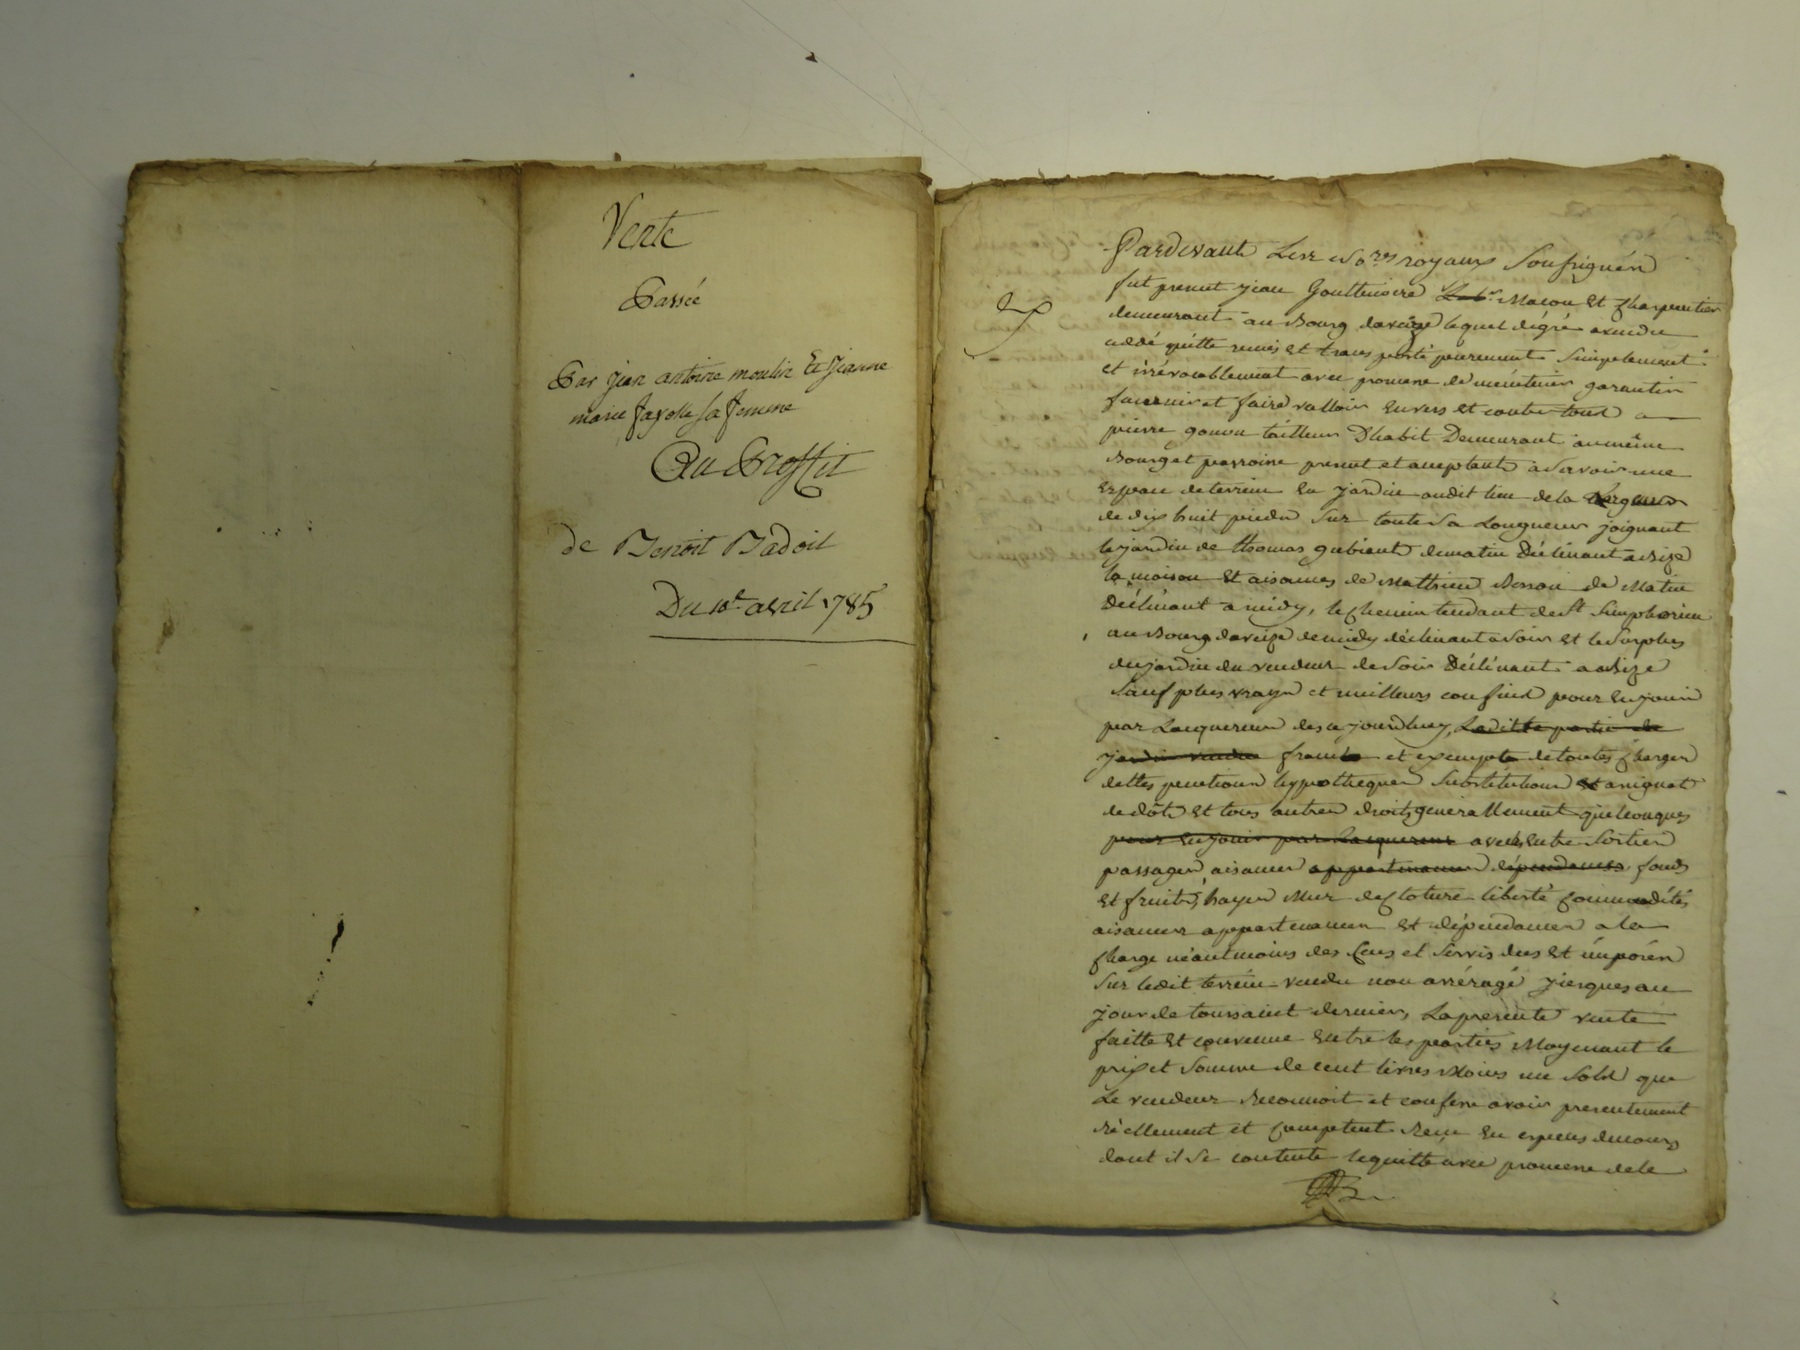 Vente
Passée
Par jean antoine moulin Et jeanne
marie fayolle sa femme
Au Proffit
de Benoît Badoil
Du 10e avril 1785
Pardevant Les no.res royaux Soussignés
fut présent jean Gouttenoire Maçon Et Charpentier
demeurant au Bourg daveize lequel de gré a vendu
cédé quitté remis et transporté purement Simplement
et irrévocablement avec promesse de maintenir garantir
fournir et faire valloir Envers et contre tous a
pierre gouvu tailleur Dhabit Demeurant au même
Bourg et parroisse present et acceptant a Scavoir une
Espace de terrein En jardin audit lieu de la
de dix huit pieds Sur toute Sa Longueur joignant
le jardin de thomas gubiand de matin Déclinant a Bize
la maison Et aisances de Matthieu de Matin
Déclinant a midy, le Chemin tendant de St Simphorien
au Bourg daveize de midy déclinant a Soir Et le Surplus
du jardin du vendeur de Soir Déclinant a Bize
Sauf plus vrays et meilleurs confins pour En jouir
par Lacquereur des ce jourdhuy, Laditte partie de
jardin vendue franche et exempte de toutes Charges
dettes pensions hypotheques Substitutions Et assignat
de dôt Et tous autres droits generallement quelconques
pour En jouir par Lacquereur avec Entrée Sorties
passages aisances appartenances dépendances fonds
Et fruits, hayes Mur de Cloture liberté Commodités
aisances appartenances Et dépendances a la
Charge néantmoins des Cens et Servis dus Et imposés
Sur ledit terrein vendu non arréragé jusques au
jour de toussaint dernier, La presente vente
faitte Et convenue Entre les parties Moyennant le
prix et Somme de cent livres Moins un Sold que
Le vendeur Reconnoit et confesse avoir presentement
Réellement et Comptant Reçu En especes de cours
dont il Se contente le quitte avec promesse de le